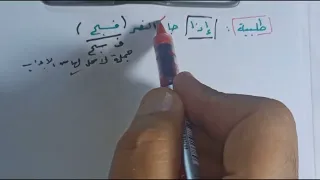 طلبية : إذا جا النصر ( فسبح )
ف سبح
جملة لا محل لها من الإعراب